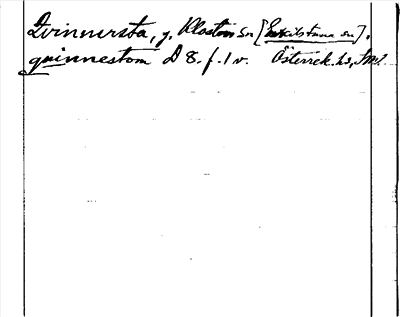 Qvinnersta, g. Kloster sn [Eskilstuna sn].
quinnestom D 8. f. 1 v. Österrek. hs,